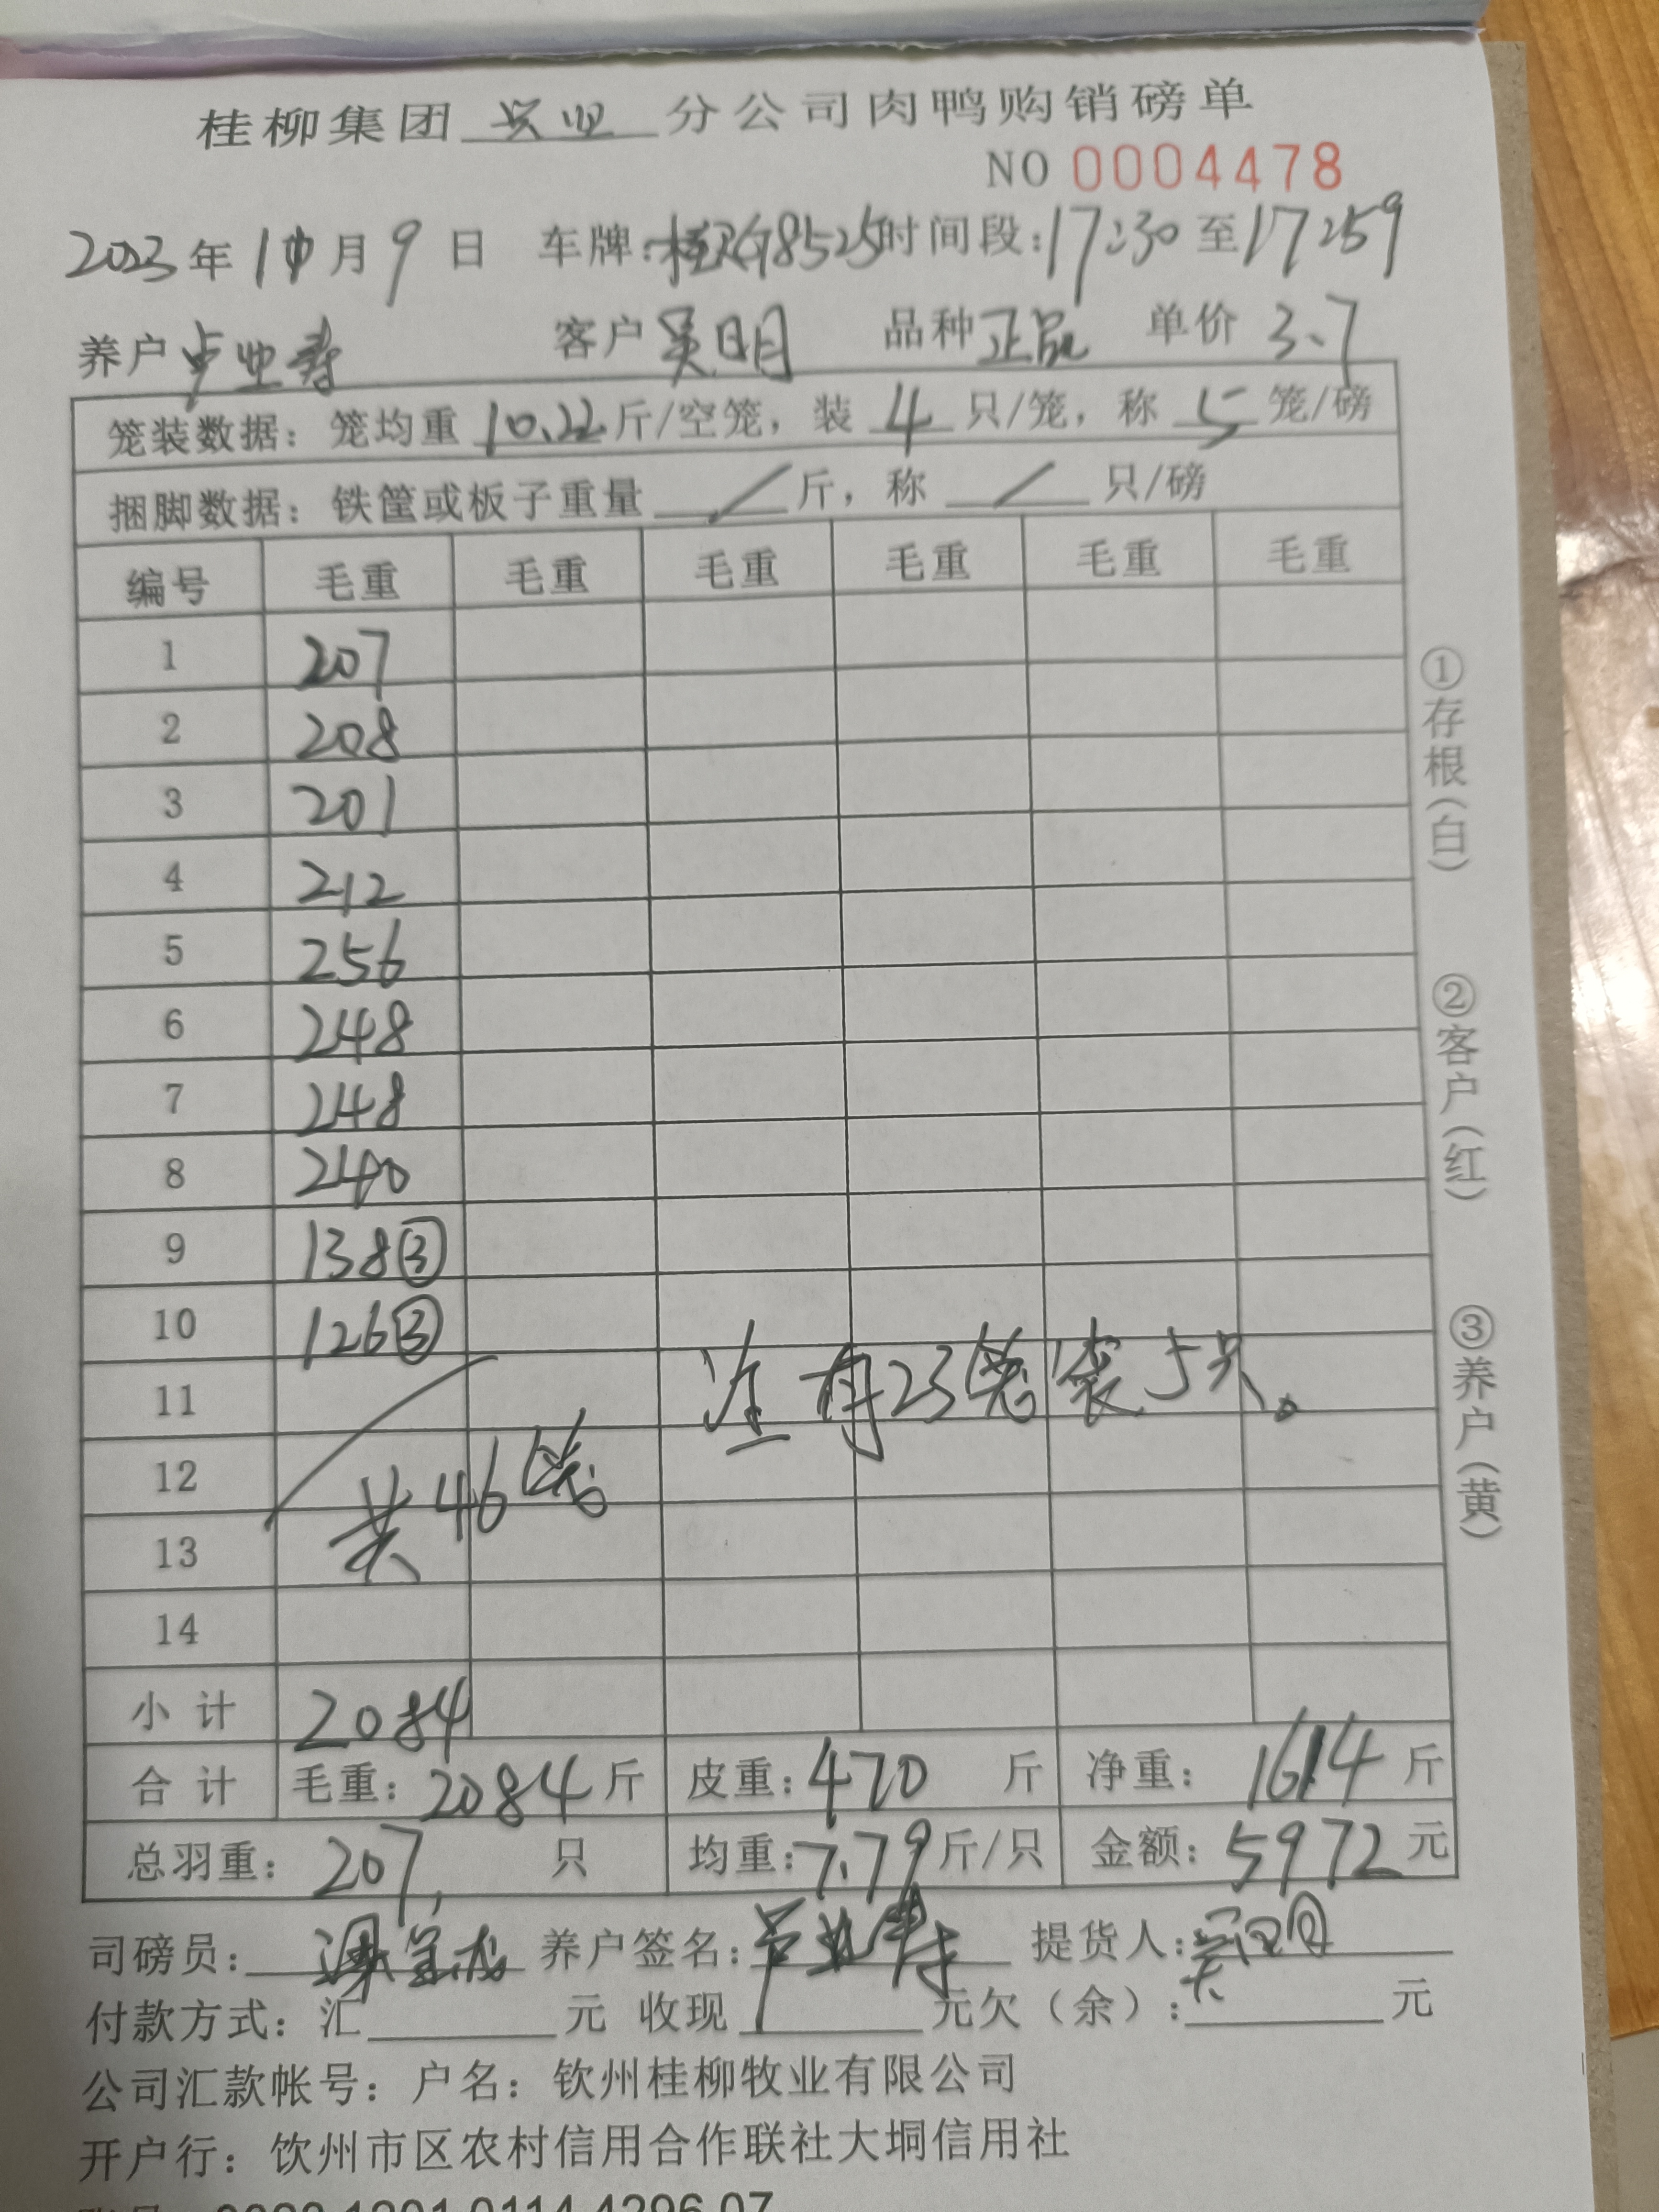 桂柳集团 兴业 分公司肉鸭购销磅单
NO 0004478
2023年10月9日 车牌: 时间段:17:30至17:59
养户卢业寿 客户吴明 品种正品 单价3.7
笼装数据: 笼均重10.22斤/空笼, 装4只/笼, 称5笼/磅
捆脚数据: 铁筐或板子重量 / 斤, 称 / 只/磅
编号 毛重 毛重 毛重 毛重 毛重 毛重
1 207
2 208
3 201
4 212
5 256
6 248
7 248
8 240
9 138③
10 126③
11
注有23笼装5只。
12
共46笼
13
14
小计 2084
合计 毛重:2084斤 皮重:470斤 净重:1614斤
总羽重:207只 均重:7.79斤/只 金额:5972元
司磅员: 养户签名:卢业寿 提货人:吴明
付款方式: 汇 元 收现 元欠(余): 元
公司汇款帐号: 户名: 钦州桂柳牧业有限公司
开户行: 钦州市区农村信用合作联社大垌信用社
①存根(白)
②客户(红)
③养户(黄)